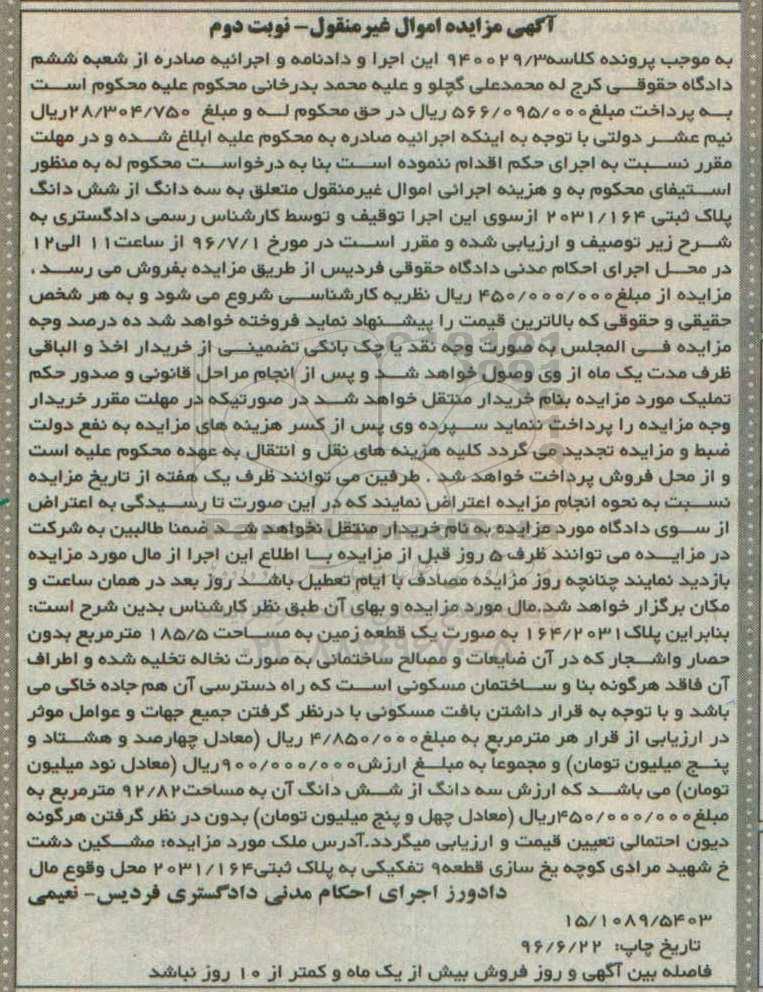 آگهی مزایده اموال غیرمنقول- نوبت دوم
به موجب پرونده کلاسه۹۴۰۰۲۹/۳ این اجرا و دادنامه و اجرائیه صادره از شعبه ششم
دادگاه حقوقی کرج له محمدعلی گچلو و علیه محمد بدرخانی محکوم علیه محکوم است
به پرداخت مبلغ۵۶۶/۰۹۵/۰۰۰ ریال در حق محکوم له و مبلغ ۲۸/۳۰۴/۷۵۰ریال
نیم عشر دولتی با توجه به اینکه اجرائیه صادره به محکوم علیه ابلاغ شده و در مهلت
مقرر نسبت به اجرای حکم اقدام ننموده است بنا به درخواست محکوم له به منظور
استیفای محکوم به و هزینه اجرائی اموال غیرمنقول متعلق به سه دانگ از شش دانگ
پلاک ثبتی ۲۰۳۱/۱۶۴ ازسوی این اجرا توقیف و توسط کارشناس رسمی دادگستری به
شرح زیر توصیف و ارزیابی شده و مقرر است در مورخ ۹۶/۷/۱ از ساعت۱۱ الی۱۲
در محل اجرای احکام مدنی دادگاه حقوقی فردیس از طریق مزایده بفروش می رسد ،
مزایده از مبلغ۴۵۰/۰۰۰/۰۰۰ ریال نظریه کارشناسی شروع می شود و به هر شخص
حقیقی و حقوقی که بالاترین قیمت را پیشنهاد نماید فروخته خواهد شد ده درصد وجه
مزایده فی المجلس به صورت وجه نقد یا چک بانکی تضمینی از خریدار اخذ و الباقی
ظرف مدت یک ماه از وی وصول خواهد شد و پس از انجام مراحل قانونی و صدور حکم
تملیک مورد مزایده بنام خریدار منتقل خواهد شد در صورتیکه در مهلت مقرر خریدار
وجه مزایده را پرداخت ننماید سپرده وی پس از کسر هزینه های مزایده به نفع دولت
ضبط و مزایده تجدید می گردد کلیه هزینه های نقل و انتقال به عهده محکوم علیه است
و از محل فروش پرداخت خواهد شد . طرفین می توانند ظرف یک هفته از تاریخ مزایده
نسبت به نحوه انجام مزایده اعتراض نمایند که در این صورت تا رسیدگی به اعتراض
از سوی دادگاه مورد مزایده به نام خریدار منتقل نخواهد شد ضمنا طالبین به شرکت
در مزایده می توانند ظرف ۵ روز قبل از مزایده با اطلاع این اجرا از مال مورد مزایده
بازدید نمایند چنانچه روز مزایده مصادف با ایام تعطیل باشد روز بعد در همان ساعت و
مکان برگزار خواهد شد.مال مورد مزایده و بهای آن طبق نظر کارشناس بدین شرح است:
بنابراین پلاک۱۶۴/۲۰۳۱ به صورت یک قطعه زمین به مساحت ۱۸۵/۵ مترمربع بدون
حصار واشجار که در آن ضایعات و مصالح ساختمانی به صورت نخاله تخلیه شده و اطراف
آن فاقد هرگونه بنا و ساختمان مسکونی است که راه دسترسی آن هم جاده خاکی می
باشد و با توجه به قرار داشتن بافت مسکونی با درنظر گرفتن جمیع جهات و عوامل موثر
در ارزیابی از قرار هر مترمربع به مبلغ۴/۸۵۰/۰۰۰ ریال (معادل چهارصد و هشتاد و
پنج میلیون تومان) و مجموعا به مبلغ ارزش۹۰۰/۰۰۰/۰۰۰ریال (معادل نود میلیون
تومان) می باشد که ارزش سه دانگ از شش دانگ آن به مساحت۹۲/۸۲ مترمربع به
مبلغ۴۵۰/۰۰۰/۰۰۰ریال (معادل چهل و پنج میلیون تومان) بدون در نظر گرفتن هرگونه
دیون احتمالی تعیین قیمت و ارزیابی میگردد.آدرس ملک مورد مزایده: مشکین دشت
خ شهید مرادی کوچه یخ سازی قطعه۹ تفکیکی به پلاک ثبتی۲۰۳۱/۱۶۴ محل وقوع مال
دادورز اجرای احکام مدنی دادگستری فردیس- نعیمی
۱۵/۱۰۸۹/۵۴۰۳
تاریخ چاپ: ۹۶/۶/۲۲
فاصله بین آگهی و روز فروش بیش از یک ماه و کمتر از ۱۰ روز نباشد